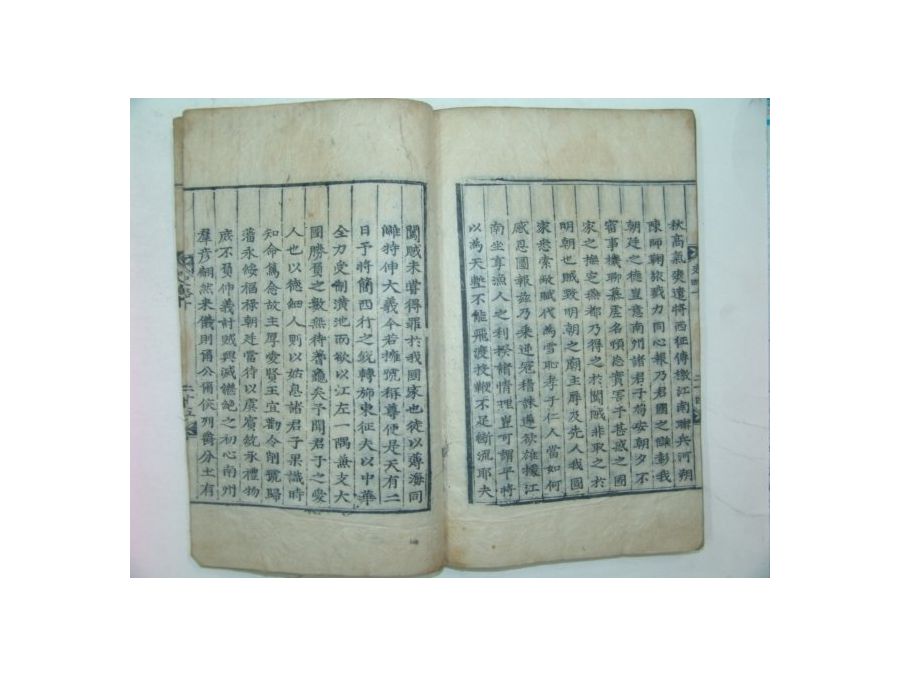 秋高氣爽遣將西征傳檄江南聯兵河朔
陳師鞠旅戮力同心報乃君國之讎彰我
朝廷之德豈意南州諸君子苟安旦夕不
審事機聊慕虛名頓忘實害予甚惑之國
家之撫定燕都乃得之於闖賊非取之於
明朝也賊毀明朝之廟主辱及先人我國
家悉索敝賦代為雪恥孝子仁人當如何
感恩圖報茲乃乘逆冦稽誅遽欲雄據江
南坐享漁人之利揆諸情理豈可謂平將
以為天塹不能飛渡投鞭不足斷流耶夫
闖賊未嘗得罪於我國家也徒以薄海同
讎特伸大義今若擁號稱尊便是天有二
日予將簡西行之銳轉旆東征夫以中華
全力受制潢池而欲以江左一隅兼支大
國勝負之數無待蓍龜矣予聞君子之愛
人也以德細人則以姑息諸君子果識時
知命篤念故主厚愛賢王宜勸令削號歸
藩永綏福祿朝廷當待以虞賓統承禮物
庶不負伸義討賊興滅繼絕之初心南州
羣彥翩然来儀則爾公爾侯列爵分土有
二十五